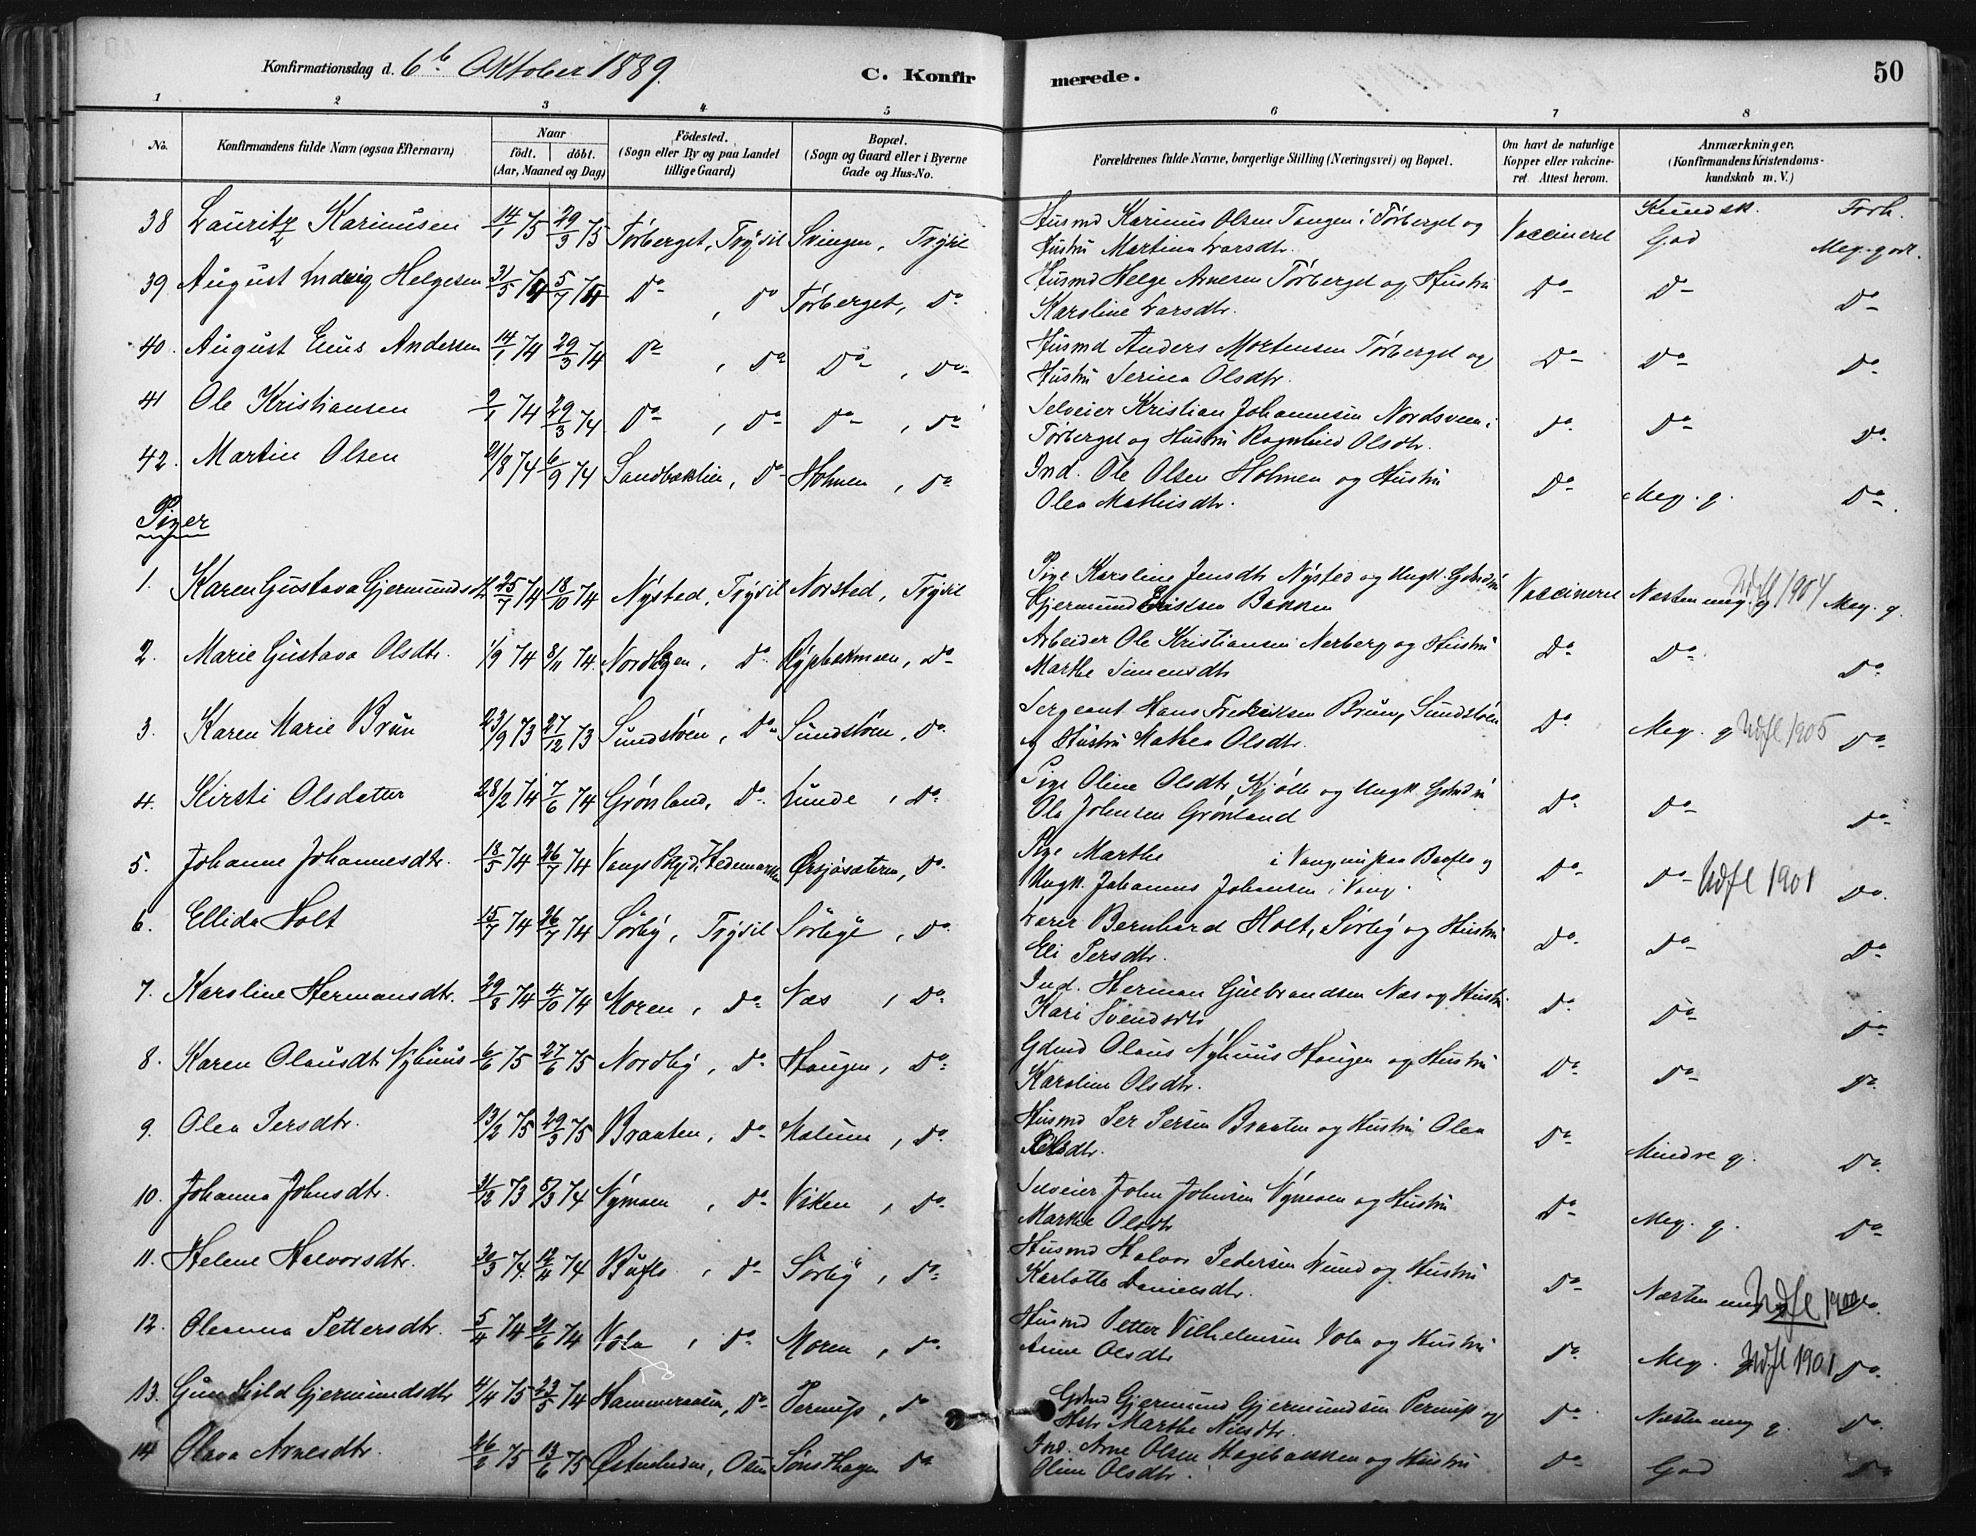 Konfirmationsdag d. 6te Oktober 1889.
C. Konfirmerede.
50
1 2 3 4 5 6 7 8
No. Konfirmandens fulde Navn (ogsaa Efternavn) Naar født. døbt. (Aar, Maaned og Dag) Födested. (Sogn eller By og paa Landet tillige Gaard) Bopæl. (Sogn og Gaard eller i Byerne Gade og Hus-No. Forældrenes fulde Navne, borgerlige Stilling (Næringsvei) og Bopæl. Om havt de naturlige Kopper eller vakcineret. Attest herom. Anmærkninger. (Konfirmandens Kristendomskundskab m. V.)
Kundsk. Forh.
38 Lauritz Karinusen 14/1 75 29/3 75 Törberget, Trysil Svingen, Trysil Husmd Karinus Olsen Tangen i Törberget og Vaccineret God Meg. godt.
Hustru Martina Larsdtr.
39 August Ludvig Helgesen 31/5 74 5/7 74 Do, Do Törberget, Do Husmd Helge Arnesen Törberget og Hustru Do Do Do
Karoline Larsdtr.
40. August Andersen 14/1 74 29/3 74 Do, Do Do, Do Husmd Anders Mortensen Törberget og Do Do Do
Hustru Serina Olsdtr.
41 Ole Kristiansen 2/1 74 29/3 74 Do, Do Do, Do Selveier Kristian Johannesen Nordsveen i Do Do Do
Törberget og Hustru Ragnhild Olsdtr.
42. Martin Olsen 21/8 74 6/9 74 Sandbæklien, Do Holmen, Do Ind. Ole Olsen Holmen og Hustru Do Meg. g. Do
Olea Mathisdtr.
Piger
1. Karen Gustava Gjermundsdt 25/7 74 18/10 74 Nysted, Trysil Norsted, Trysil Pige Karoline Jensdtr Nysted og Ungk. Gdmdsn Vaccineret Næsten meg. g. Udfl 1904 Meg. g.
Gjermund Eriksen Bakken
2. Marie Gustava Olsdtr. 1/9 74 8/11 74 Do Do Arbeider Ole Kristiansen Nerberg og Hustru Do Do Do
Marthe Simensdtr
3. Karen Marie Brun 23/9 73 27/12 73 Sundstöen, Do Sundstöen, Do Sergeant Hans Fredriksen Brun, Sundstöen Do Meg. g Udfl 1905 Do
og Hustru Mathea Olsdtr.
4. Kirsti Olsdatter 28/2 74 7/6 74 Grönland, Do Lunde, Do Pige Oline Olsdtr, Kjölle og Ungk. Gdmdsn Do Do Do
Ole Johnsen Grönland
5. Johanne Johannesdtr. 18/5 74 26/7 74 Vangs Hedemarken Ørsjøsæteren, Do Pige Marthe i Vang nu paa Baaflo og Do Do Udfl 1901 Do
Ungk. Johannes Johansen i Vang.
6. Ellida Holt 15/7 74 26/7 74 Sörby, Trysil Sörby, Do Lærer Bernhard Holt, Sörby og Hustru Do Do Do
Eli Persdtr.
7. Karoline Hermansdtr. 29/8 74 4/10 74 Moren, Do Næs, Do Ind. Herman Gulbrandsen Næs og Hustru Do Do Do
Kari Svendsdtr
8. Karen Olausdtr Nyhuus 6/6 75 27/6 75 Nordby, Do Haugen, Do Gdmd Olaus Nyhuus Haugen og Hustru Do Do Do
Karoline Olsdtr.
9. Olea Persdtr. 13/2 75 29/3 75 Braaten, Do Do Husmd Per Persen Braaten og Hustru Olea Do Mindre g. Do
10. Johanna Johnsdtr. 31/12 73 5/3 74 Nymoen, Do Viken, Do Selveier John Johnsen Nymoen og Hustru Do Meg. g. Do
Marthe Olsdtr
11. Helene Halvorsdtr. 30/3 74 12/4 74 Buflo, Do Sörby, Do Husmd Halvor Pedersen Lund og Hustru Do Næsten meg Udfl Do
Karlotte Danielsdtr.
12. Oleanna Pettersdtr. 5/4 74 21/6 74 Vola, Do Moren, Do Husmd Petter Vilhelmsen Vola og Hustru Do Meg. Udfl 1901 Do
Anne Olsdtr
13. Gunhild Gjermundsdtr 4/4 75 Do Pernup, Do Gdmd Gjermund Gjermundsen Pernup og Do Næsten meg g. Do
Hstr Marthe Nilsdtr.
14 Olava Arnesdtr. 26/2 75 13/6 75 Osen Sönsthagen Do Ind. Arne Olsen Hagebakken og Hustru Do God Do
Oline Olsdtr.